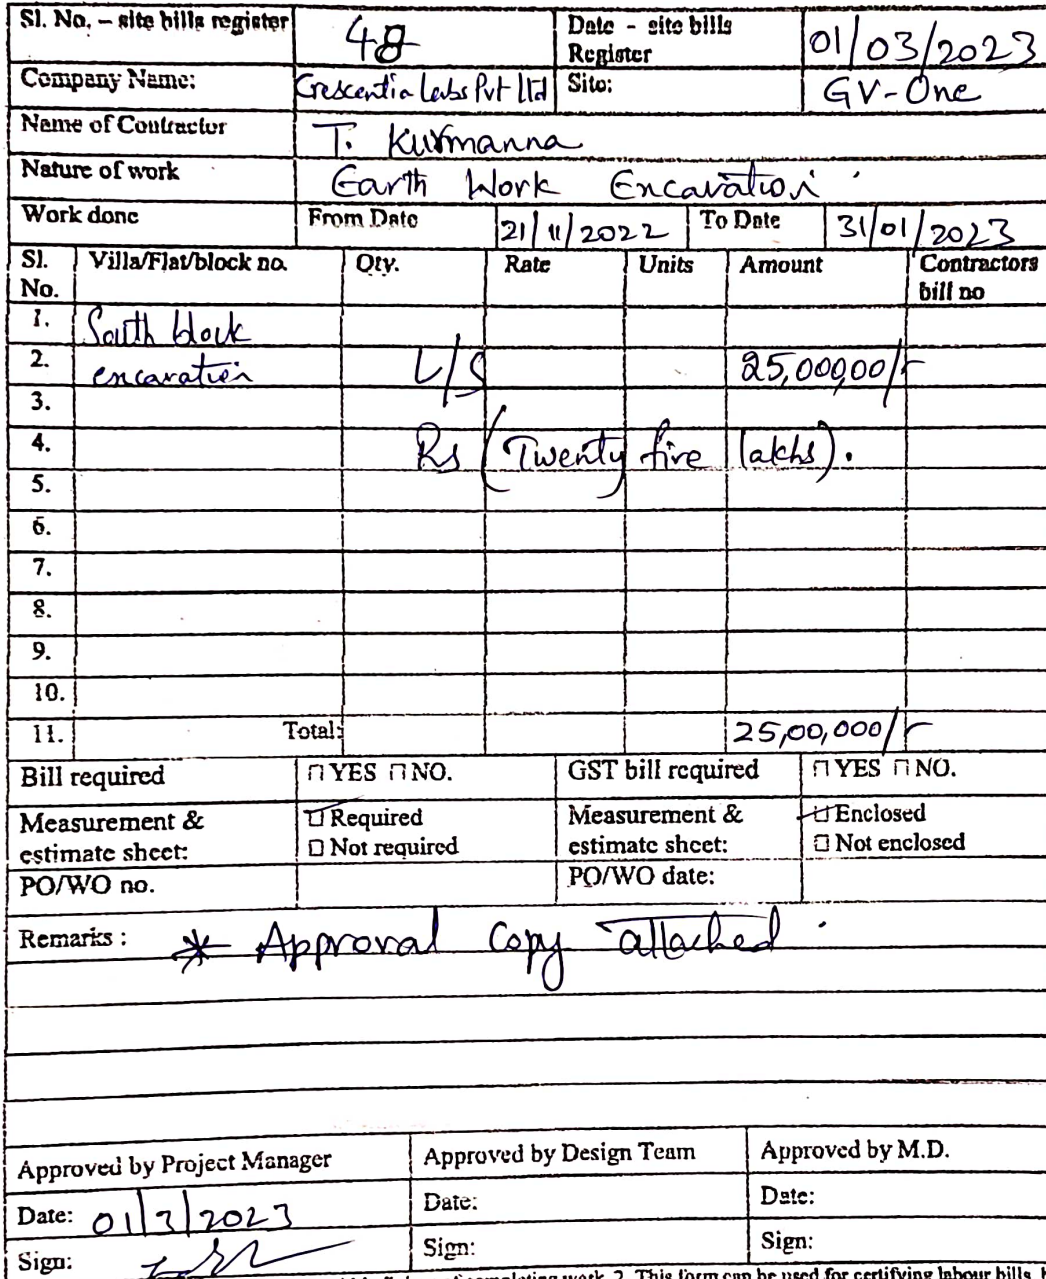 Sl. No. – site bills register 48 Date – site bills Register 01/03/2023
Company Name: Crescentia Labs Pvt Ltd Site: GV-One
Name of Contractor T. Kurmanna
Nature of work Earth Work Excavation
Work done From Date 21/11/2022 To Date 31/01/2023
Sl. No. Villa/Flat/block no. Qty. Rate Units Amount Contractors bill no
1. South block
2. excavation L/S 25,00,000/-
3.
4. Rs (Twenty five lakhs).
5.
6.
7.
8.
9.
10.
11. Total: 25,00,000/-
Bill required YES NO. GST bill required YES NO.
Measurement & estimate sheet: Required Measurement & estimate sheet: Enclosed
Not required Not enclosed
PO/WO no. PO/WO date:
Remarks : * Approval Copy attached
Approved by Project Manager Approved by Design Team Approved by M.D.
Date: 01/3/2023 Date: Date:
Sign: Sign: Sign:
completing work. 2. This form can be used for certifying labour bills.